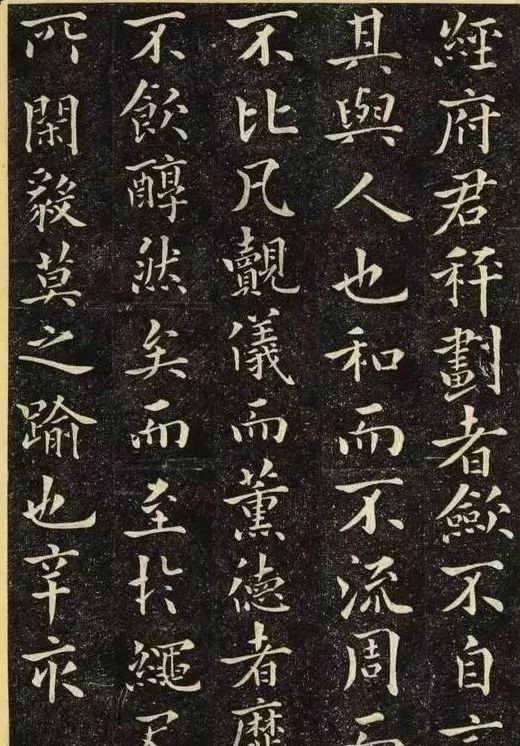 經府君秤劃者歛不自言
其與人也和而不流周而
不比凡覿儀而薰德者靡
不飲醇然矣而至於繩尺
所閑毅莫之踰也辛亥